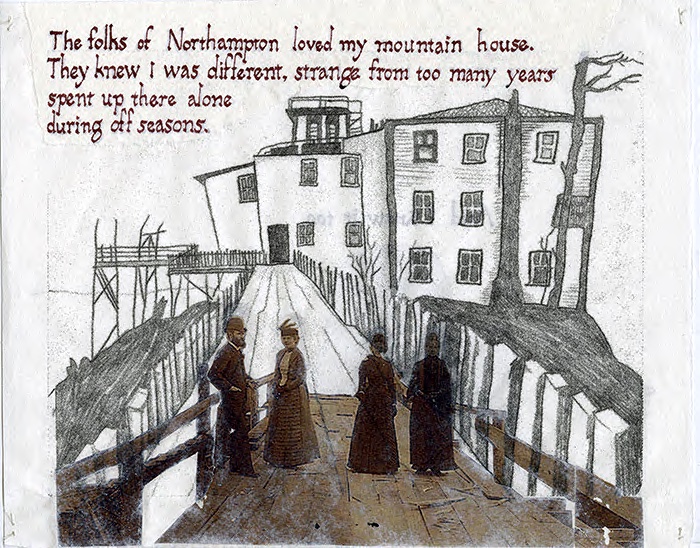 The folks of Northampton loved my mountain house.
They knew I was different, strange from too many years
spent up there alone
during off seasons.